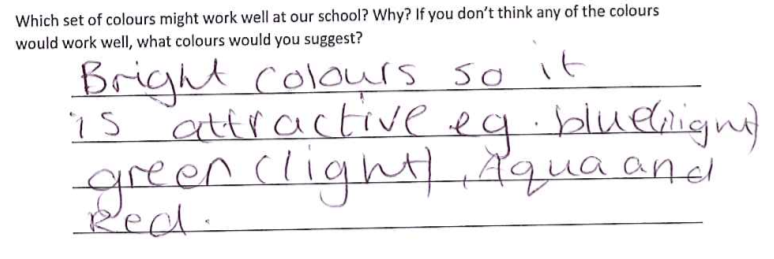 Which set of colours might work well at our school? Why? If you don't think any of the colours
would work well, what colours would you suggest?
Bright colours so it
is attractive eg. blue(light)
green (light), Aqua and
Red.